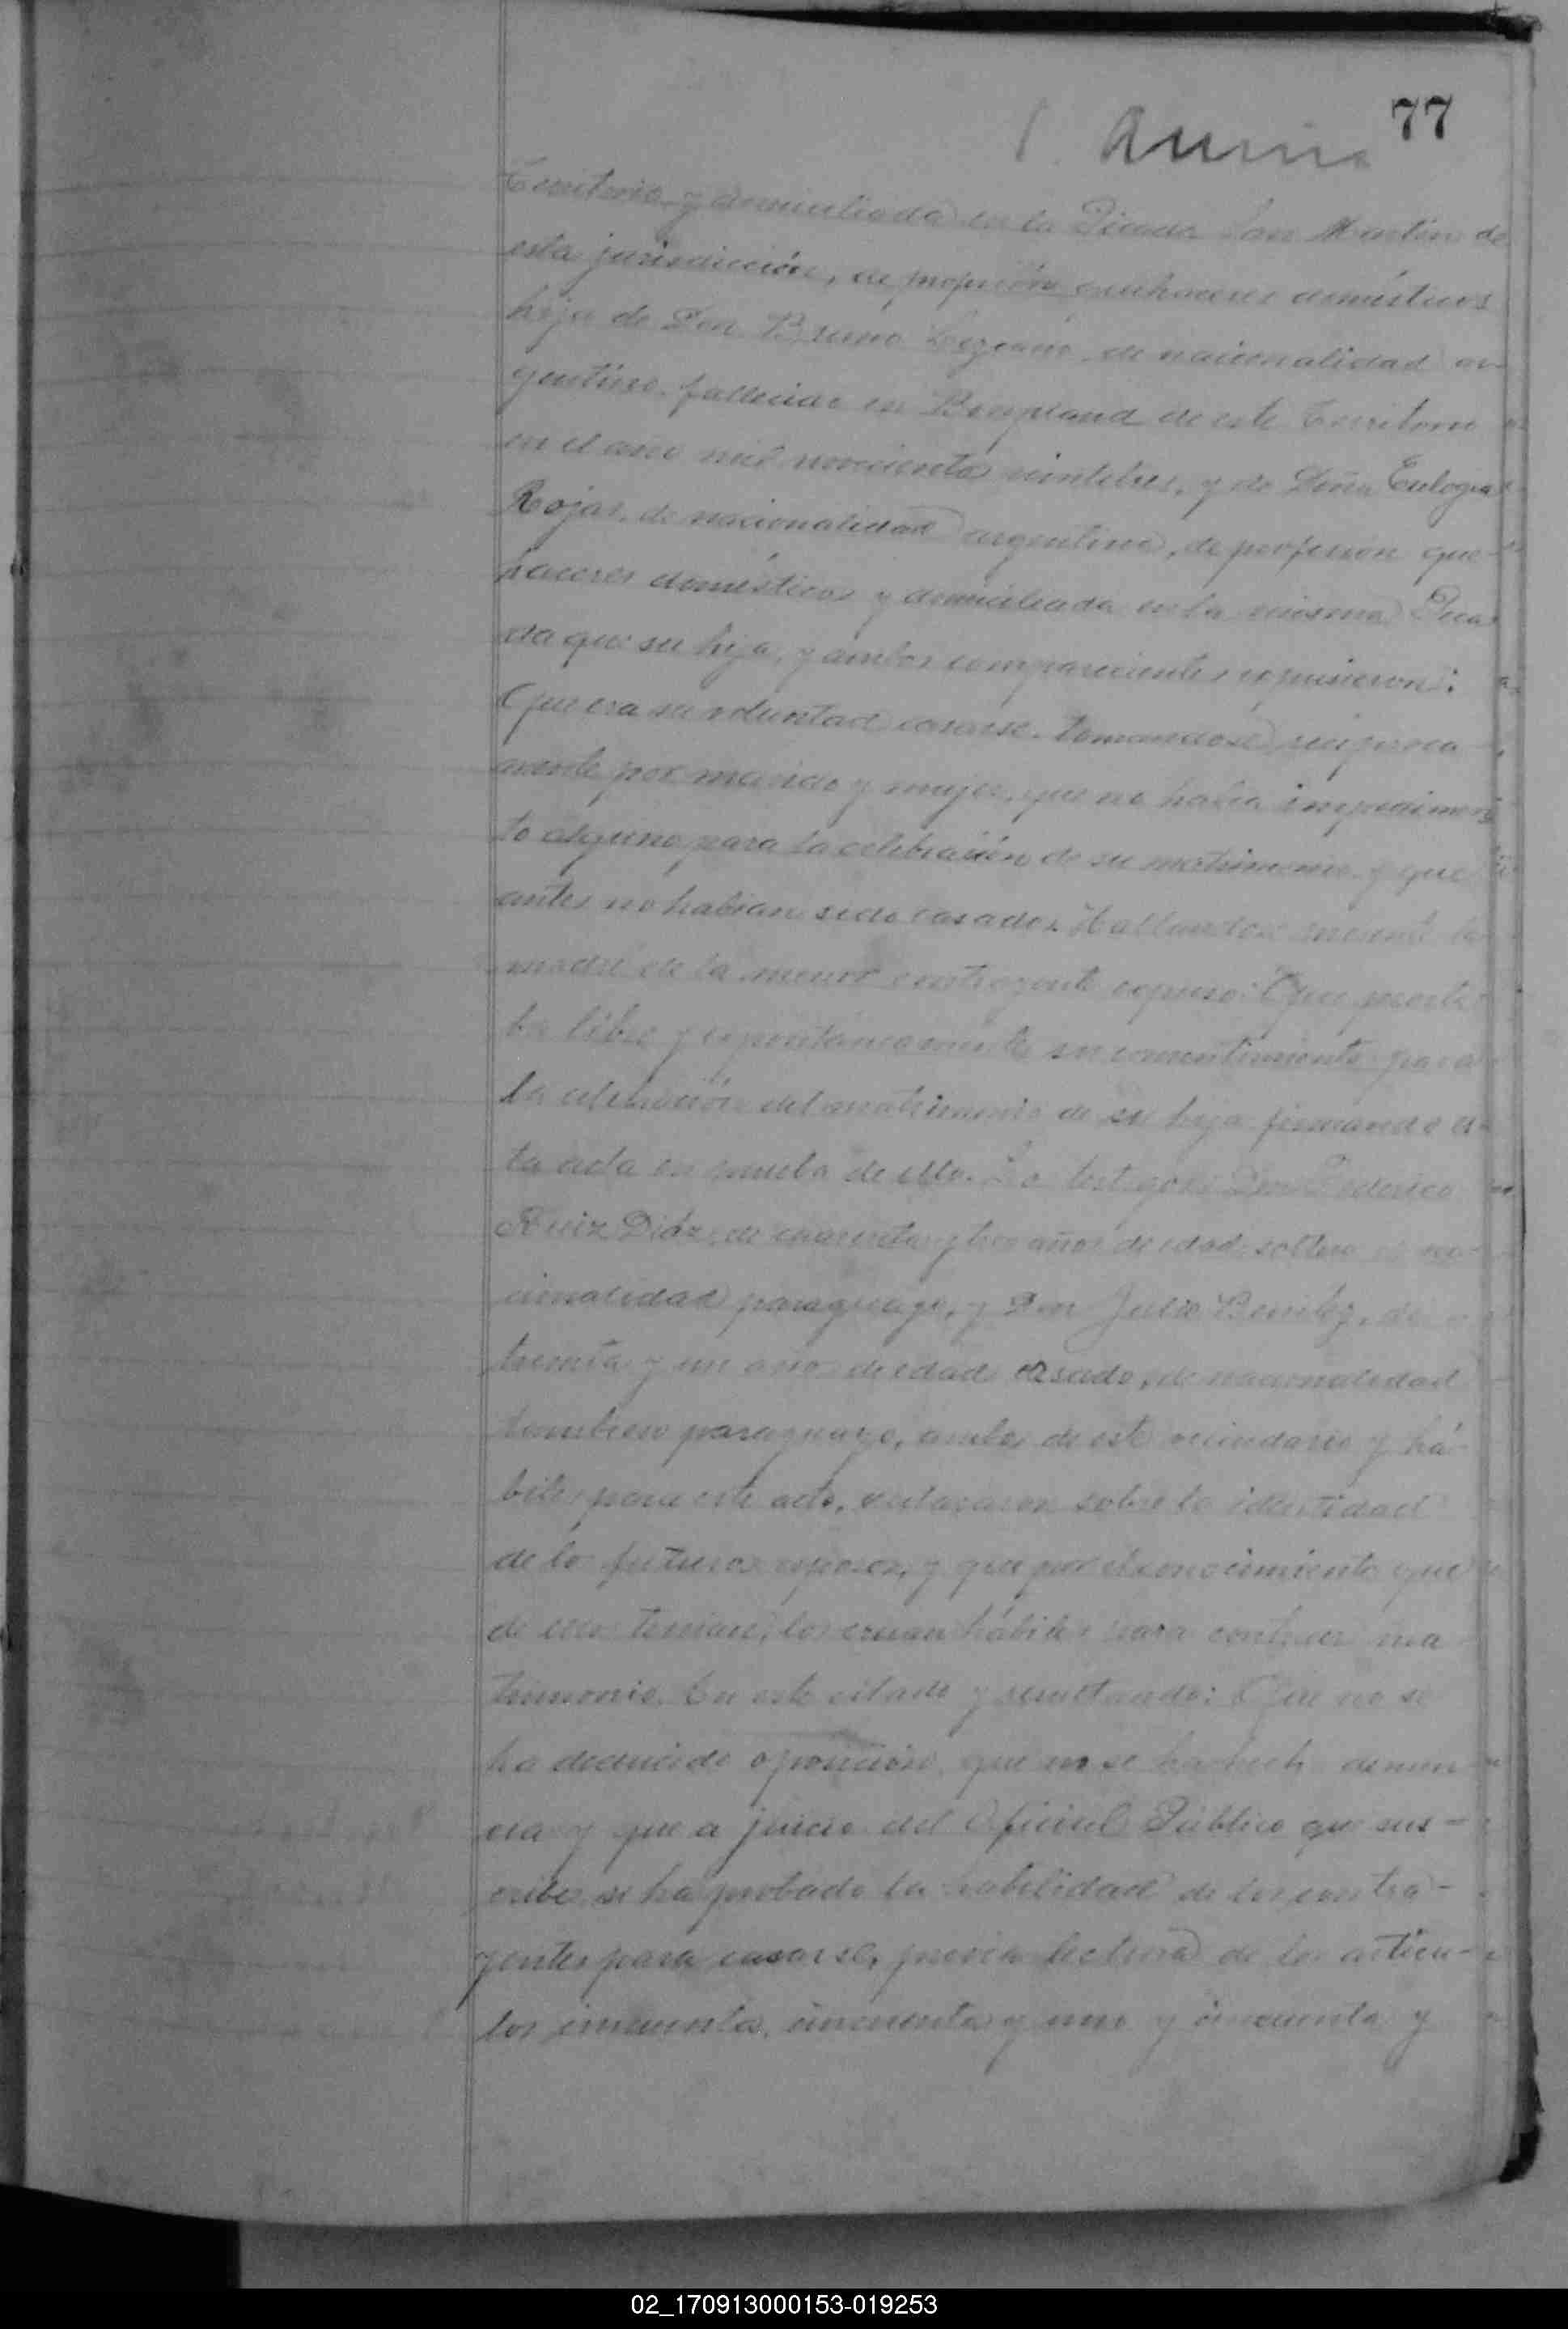 77
Territorio y domiciliada en la Picada San Martin de
esta jurisdicción, de profesión quehaceres domésticos
hija de Don Bruno Lezcano de nacionalidad ar-
gentino, fallecido en Bonpland de este Territorio
en el año mil novecientos veintitres, y de Doña Eulogia
Rojas, de nacionalidad argentina, de profesión que-
haceres domésticos y domiciliada en la misma Pica
da que su hija, y ambos comparecientes expusieron:
Que era su voluntad casarse tomandose reciproca
mente por marido y mujer, que no habia impedimen
to alguno para la celebración de su matrimonio y que
antes no habian sido casados. Hallandose presente la
madre de la menor contrayente expuso: Que presta
ba libre y espontaneamente su consentimiento para
la celebración del matrimonio de su hija firmando es
ta acta en prueba de ello. Los testigos Don Federico
Ruiz Diáz, de cuarenta y tres años de edad, soltero de na-
cionalidad paraguayo, y Don Julio Benitez, de
treinta y un años de edad casado, de nacionalidad
tambien paraguayo, ambos de este vecindario y há-
biles para este acto, declararon sobre la identidad
de los futuros esposos, y que por el conocimiento que
de ellos tenian, los creian hábiles para contraer ma
trimonio. En este estado y resultando: Que no se
ha deducido oposición, que no se ha hecho denun
cia y que a juicio del Oficial Público que sus-
cribe se ha probado la habilidad de los contra-
yentes para casarse, previa lectura de los articu-
los cincuenta, cincuenta y uno y cincuenta y
02_170913000153-019253